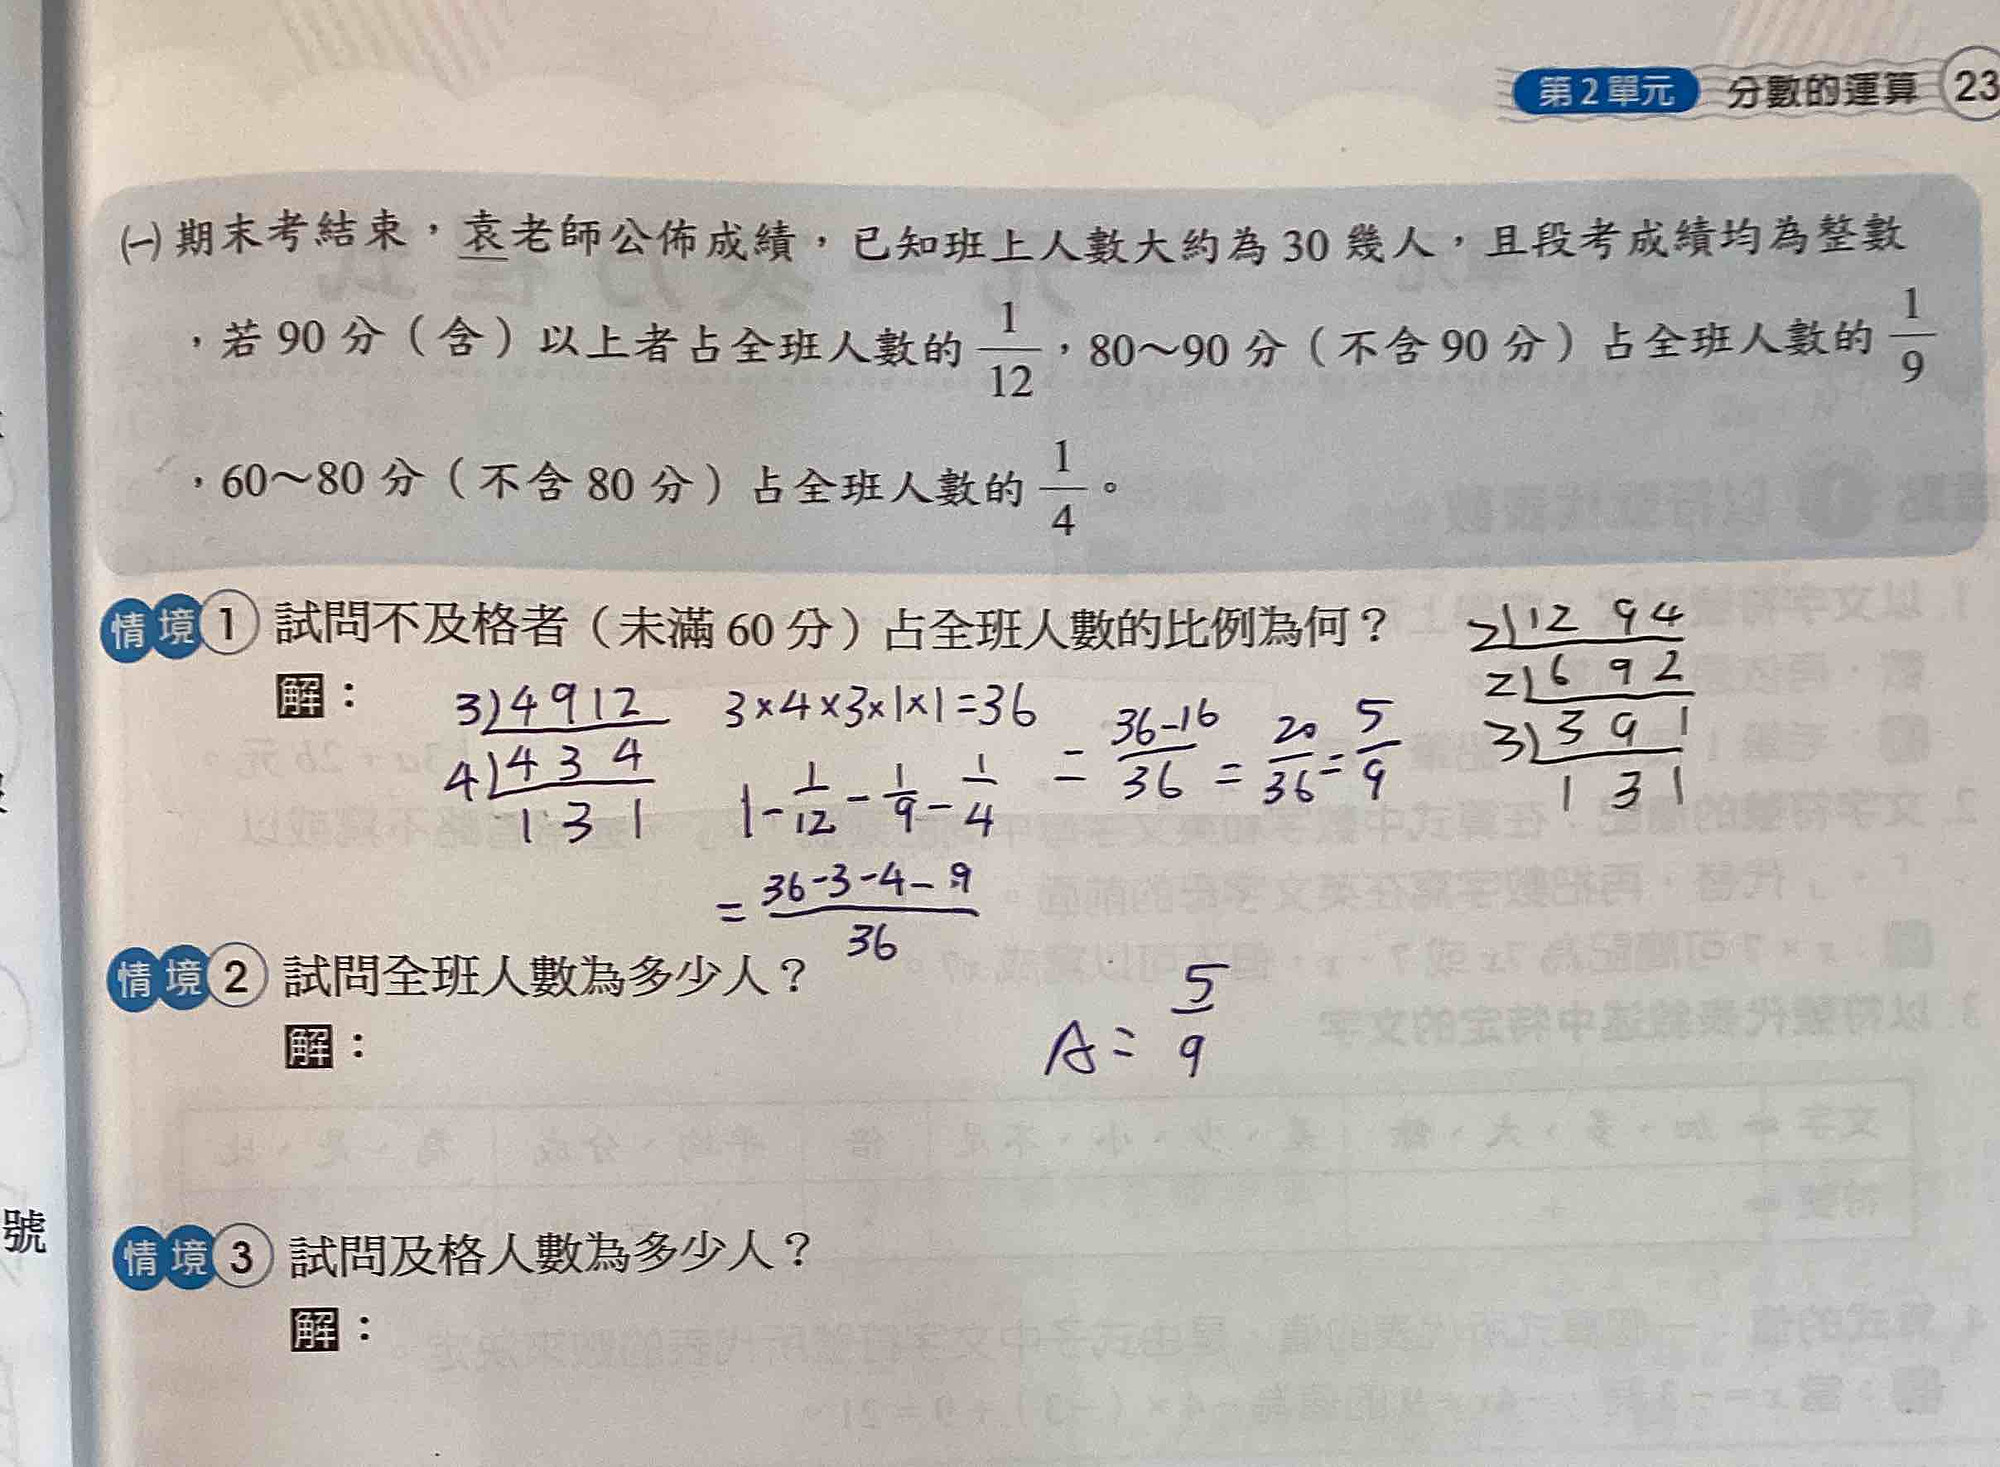 第2單元 分數的運算 23
㈠期末考結束，袁老師公佈成績，已知班上人數大約為 30 幾人，且段考成績均為整數
，若 90 分（含）以上者占全班人數的 1/12，80～90 分（不含 90 分）占全班人數的 1/9
，60～80 分（不含 80 分）占全班人數的 1/4。
情境1 試問不及格者（未滿 60 分）占全班人數的比例為何？
解：
3)4 9 12
4)4 3 4
1 3 1
3×4×3×1×1=36
1-1/12-1/9-1/4
=(36-3-4-9)/36
=(36-16)/36=20/36=5/9
2)12 9 4
2)6 9 2
3)3 9 1
1 3 1
A=5/9
情境2 試問全班人數為多少人？
解：
情境3 試問及格人數為多少人？
解：
號